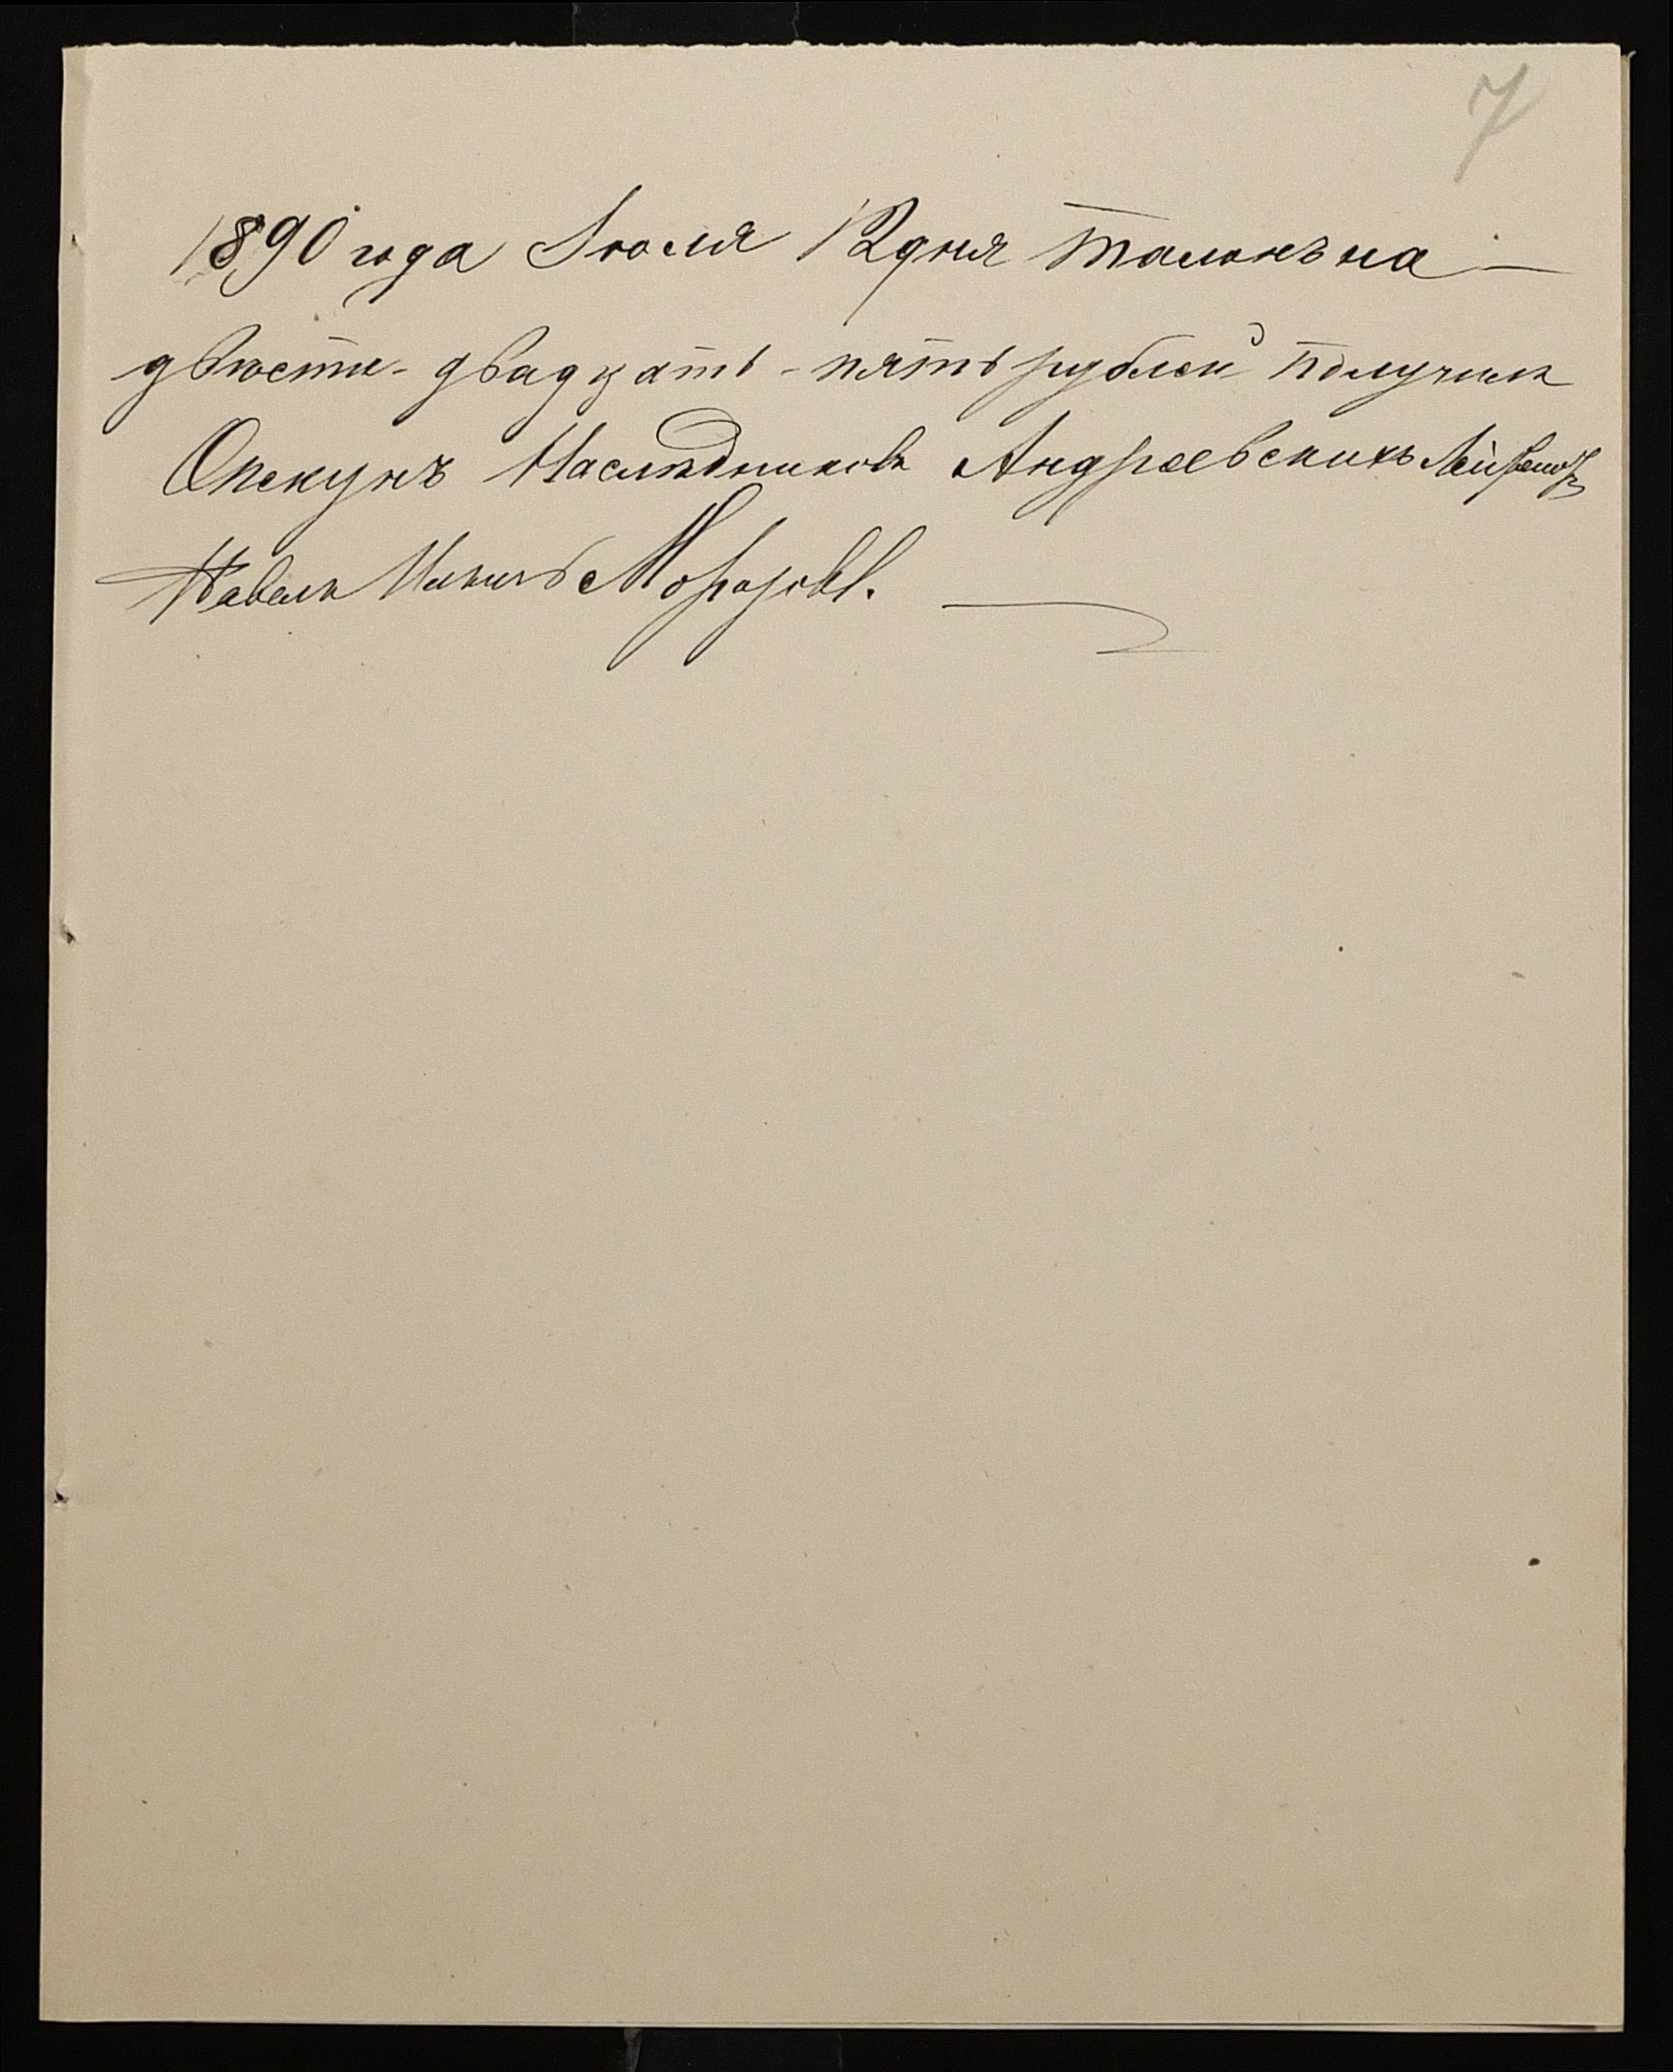 7
1890 года Іюля 12 дня талонъ на —
двѣсти - двадцать - пять рублей получилъ
Опекунъ Наслѣдниковъ Андреевскихъ
Павелъ Морозовъ.